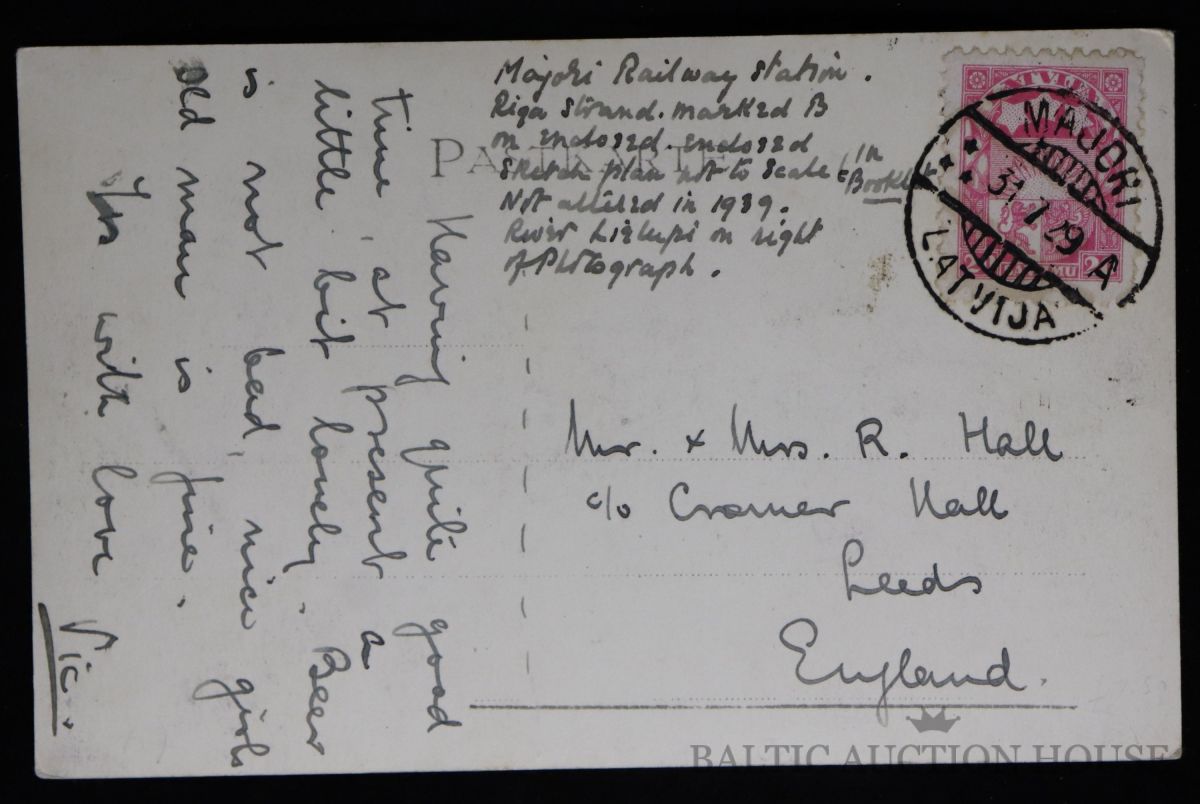 Majori Railway Station.
Riga Strand. marked B
on enclosed. enclosed
sketch plan not to scale (in
Booklet
Not altered in 1939.
River Lielupi on right
of Photograph.
PASTKARTE
Having quite good
time, at present a
little bit lonely. Beer
is not bad, nice girls
old man is fine.
Yrs with love
Vic.
LATVIJA
MAJORI
31 7 29 A
LATVIJA
Mr. + Mrs. R. Hall
c/o Cromer Hall
Leeds
England.
BALTIC AUCTION HOUSE